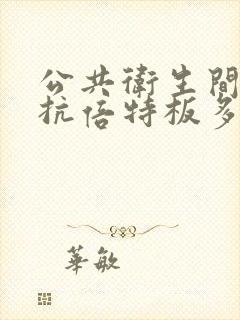 公共衛生間
抗倍特板多
華敏